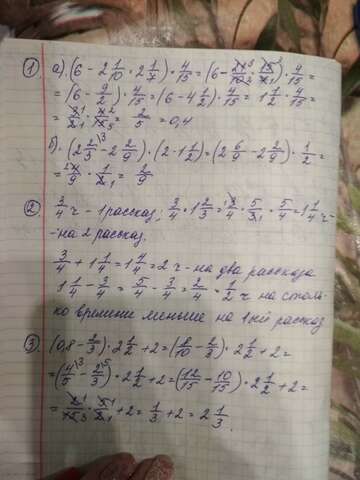 ① а). (6 - 2 1/10 · 2 1/7) · 4/15 = (6 - 21/10 · 15/7) · 4/15 =
= (6 - 9/2) · 4/15 = (6 - 4 1/2) · 4/15 = 1 1/2 · 4/15 =
= 3/2 · 4/15 = 2/5 = 0,4
б). (2 2/3 - 2 2/9) · (2 - 1 1/2) = (2 6/9 - 2 2/9) · 1/2 =
= 4/9 · 1/2 = 2/9
② 3/4 ч - 1 рассказ; 3/4 · 1 2/3 = 3/4 · 5/3 = 5/4 = 1 1/4 ч -
- на 2 рассказ.
3/4 + 1 1/4 = 1 4/4 = 2 ч - на два рассказа
1 1/4 - 3/4 = 5/4 - 3/4 = 2/4 = 1/2 ч на столь-
ко времени меньше на 1ый рассказ
③. (0,8 - 2/3) · 2 1/2 + 2 = (8/10 - 2/3) · 2 1/2 + 2 =
= (4/5 - 2/3) · 2 1/2 + 2 = (12/15 - 10/15) · 2 1/2 + 2 =
= 2/15 · 5/2 + 2 = 1/3 + 2 = 2 1/3.